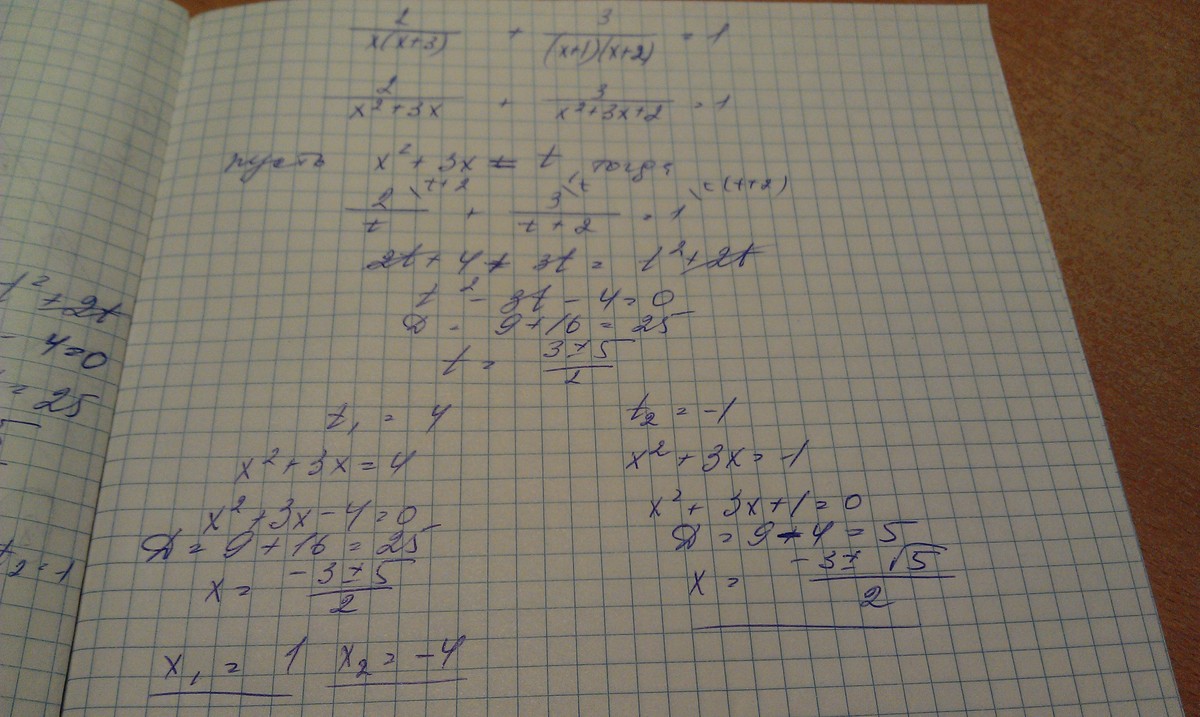 2/(x(x+3)) + 3/((x+1)(x+2)) = 1
2/(x²+3x) + 3/(x²+3x+2) = 1
пусть x² + 3x = t, тогда
2/t \t+2 + 3/(t+2) \t = 1 \t(t+2)
2t + 4 + 3t = t² + 2t
t² - 3t - 4 = 0
D = 9+16 = 25
t = (3±5)/2
t₁ = 4
x²+3x = 4
x²+3x-4=0
D = 9+16 = 25
x = (-3±5)/2
x₁ = 1 x₂ = -4
t₂ = -1
x² + 3x = -1
x² + 3x + 1 = 0
D = 9-4 = 5
x = (-3±√5)/2
t² + 2t
- 4=0
= 25
t₂ = -1